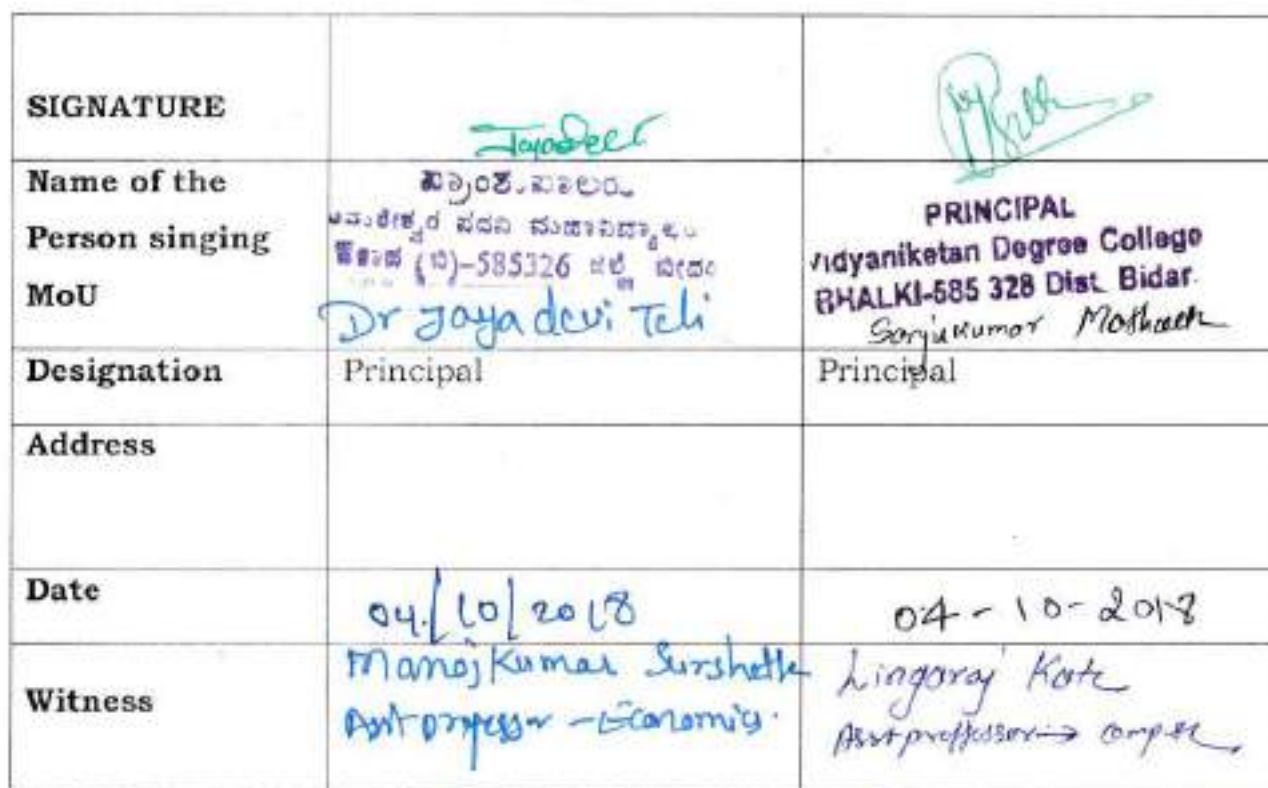 SIGNATURE
Jayadevi
Name of the
Person singing
MoU
ಪ್ರಾಂಶುಪಾಲರು
ಅಮರೇಶ್ವರ ಪದವಿ ಮಹಾವಿದ್ಯಾಲಯ
(ಬಿ)-585326 ಜಿಲ್ಲೆ ಬೀದರ
Dr Jayadevi Teli
PRINCIPAL
Vidyaniketan Degree College
BHALKI-585 328 Dist. Bidar.
Sanjukumar
Designation
Principal
Principal
Address
Date
04/10/2018
04-10-2018
Witness
Manojkumar Surshette
Asst professor - Economics.
Lingaraj Kote
Asst proffessor →